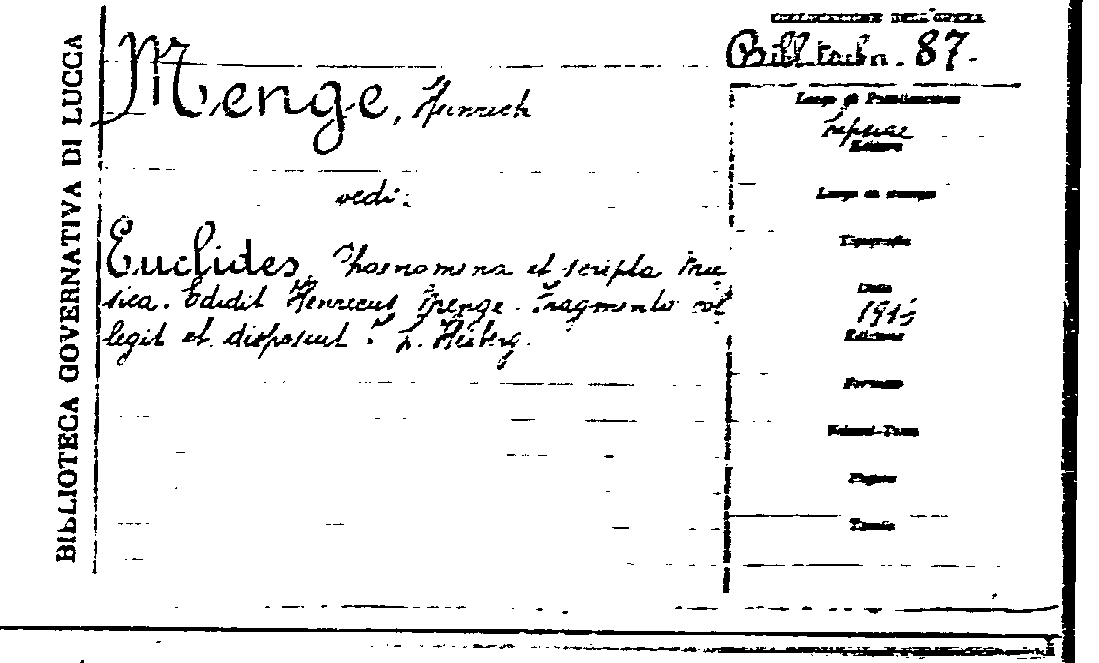 BIBLIOTECA GOVERNATIVA DI LUCCA
COLLOCAZIONE DELL'OPERA
Bibl. teubn. 87.
Menge, Heinrich
vedi:
Euclides, Phaenomena et scripta mu
sica. Edidit Henricus Menge. Fragmenta col
legit et disposuit I. L. Heiberg.
Luogo di Pubblicazione
Lipsiae
Editore
Luogo di stampa
Tipografia
Data
1916
Edizione
Formato
Volumi-Tomi
Pagine
Tavole